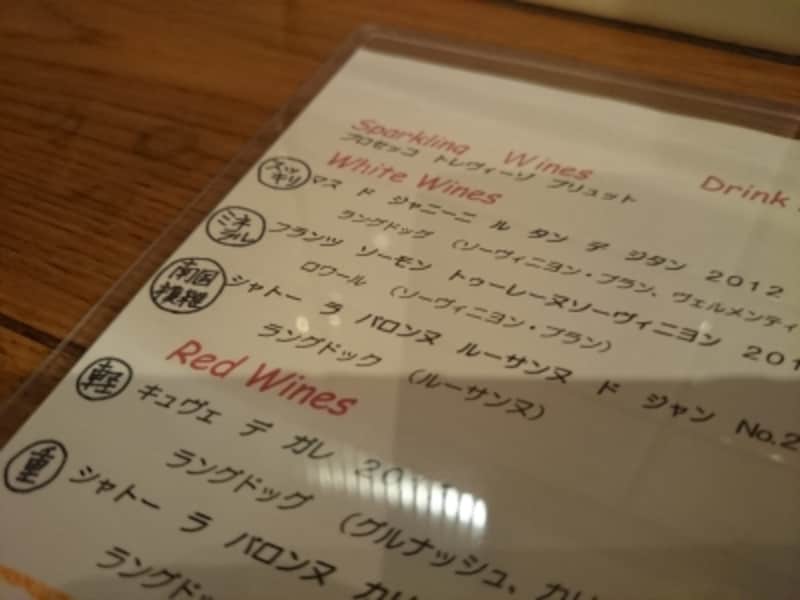 Sparkling Wines
プロセッコ トレヴィーゾ ブリュット
Drink
White Wines
スッキリ
マス ド ジャニーニ ル タン デ ジタン 2012
ラングドッグ (ソーヴィニヨン・ブラン、ヴェルメンティ
ミネラル
フランツ ソーモン トゥーレーヌソーヴィニヨン 201
ロワール (ソーヴィニヨン・ブラン)
南国
シャトー ラ バロンヌ ルーサンヌ ド ジャン No.2
ラングドック (ルーサンヌ)
Red Wines
軽
キュヴェ デ ガレ
ラングドッグ (グルナッシュ、カリ
重
シャトー ラ バロンヌ カリ
ラングドッ